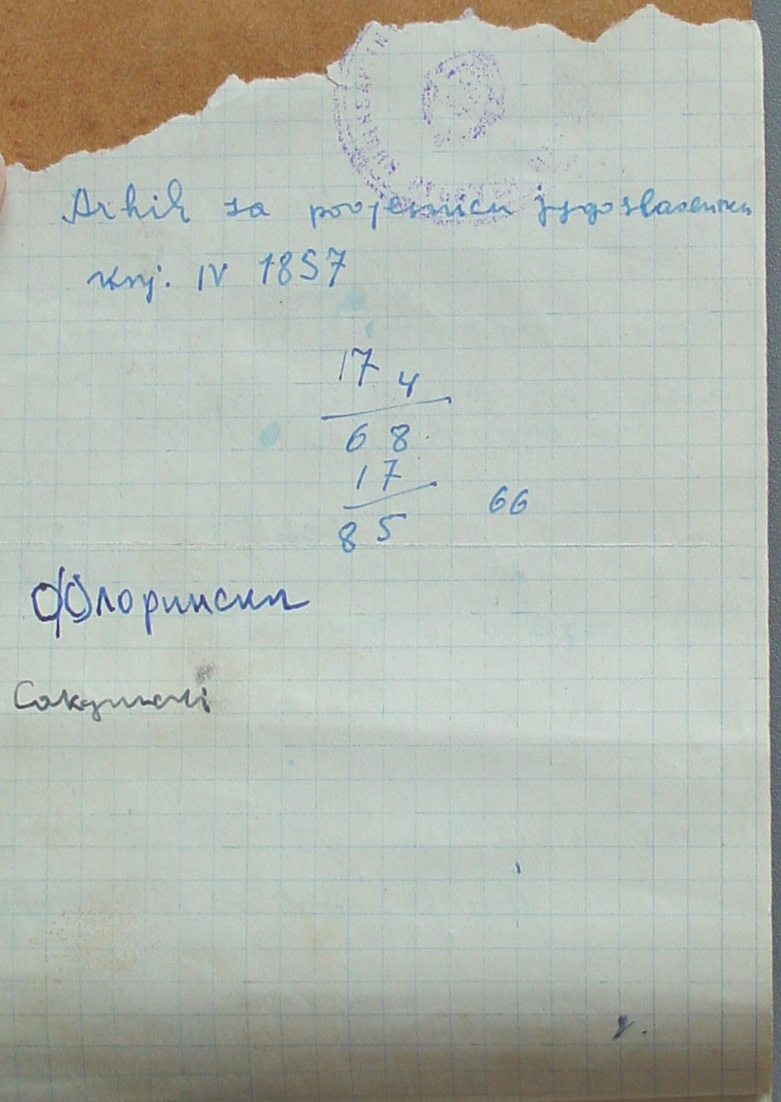 Arhiv za povjesnicu jugoslavensku
knj. IV 1857
17 4
6 8
17
85 66
Флорински